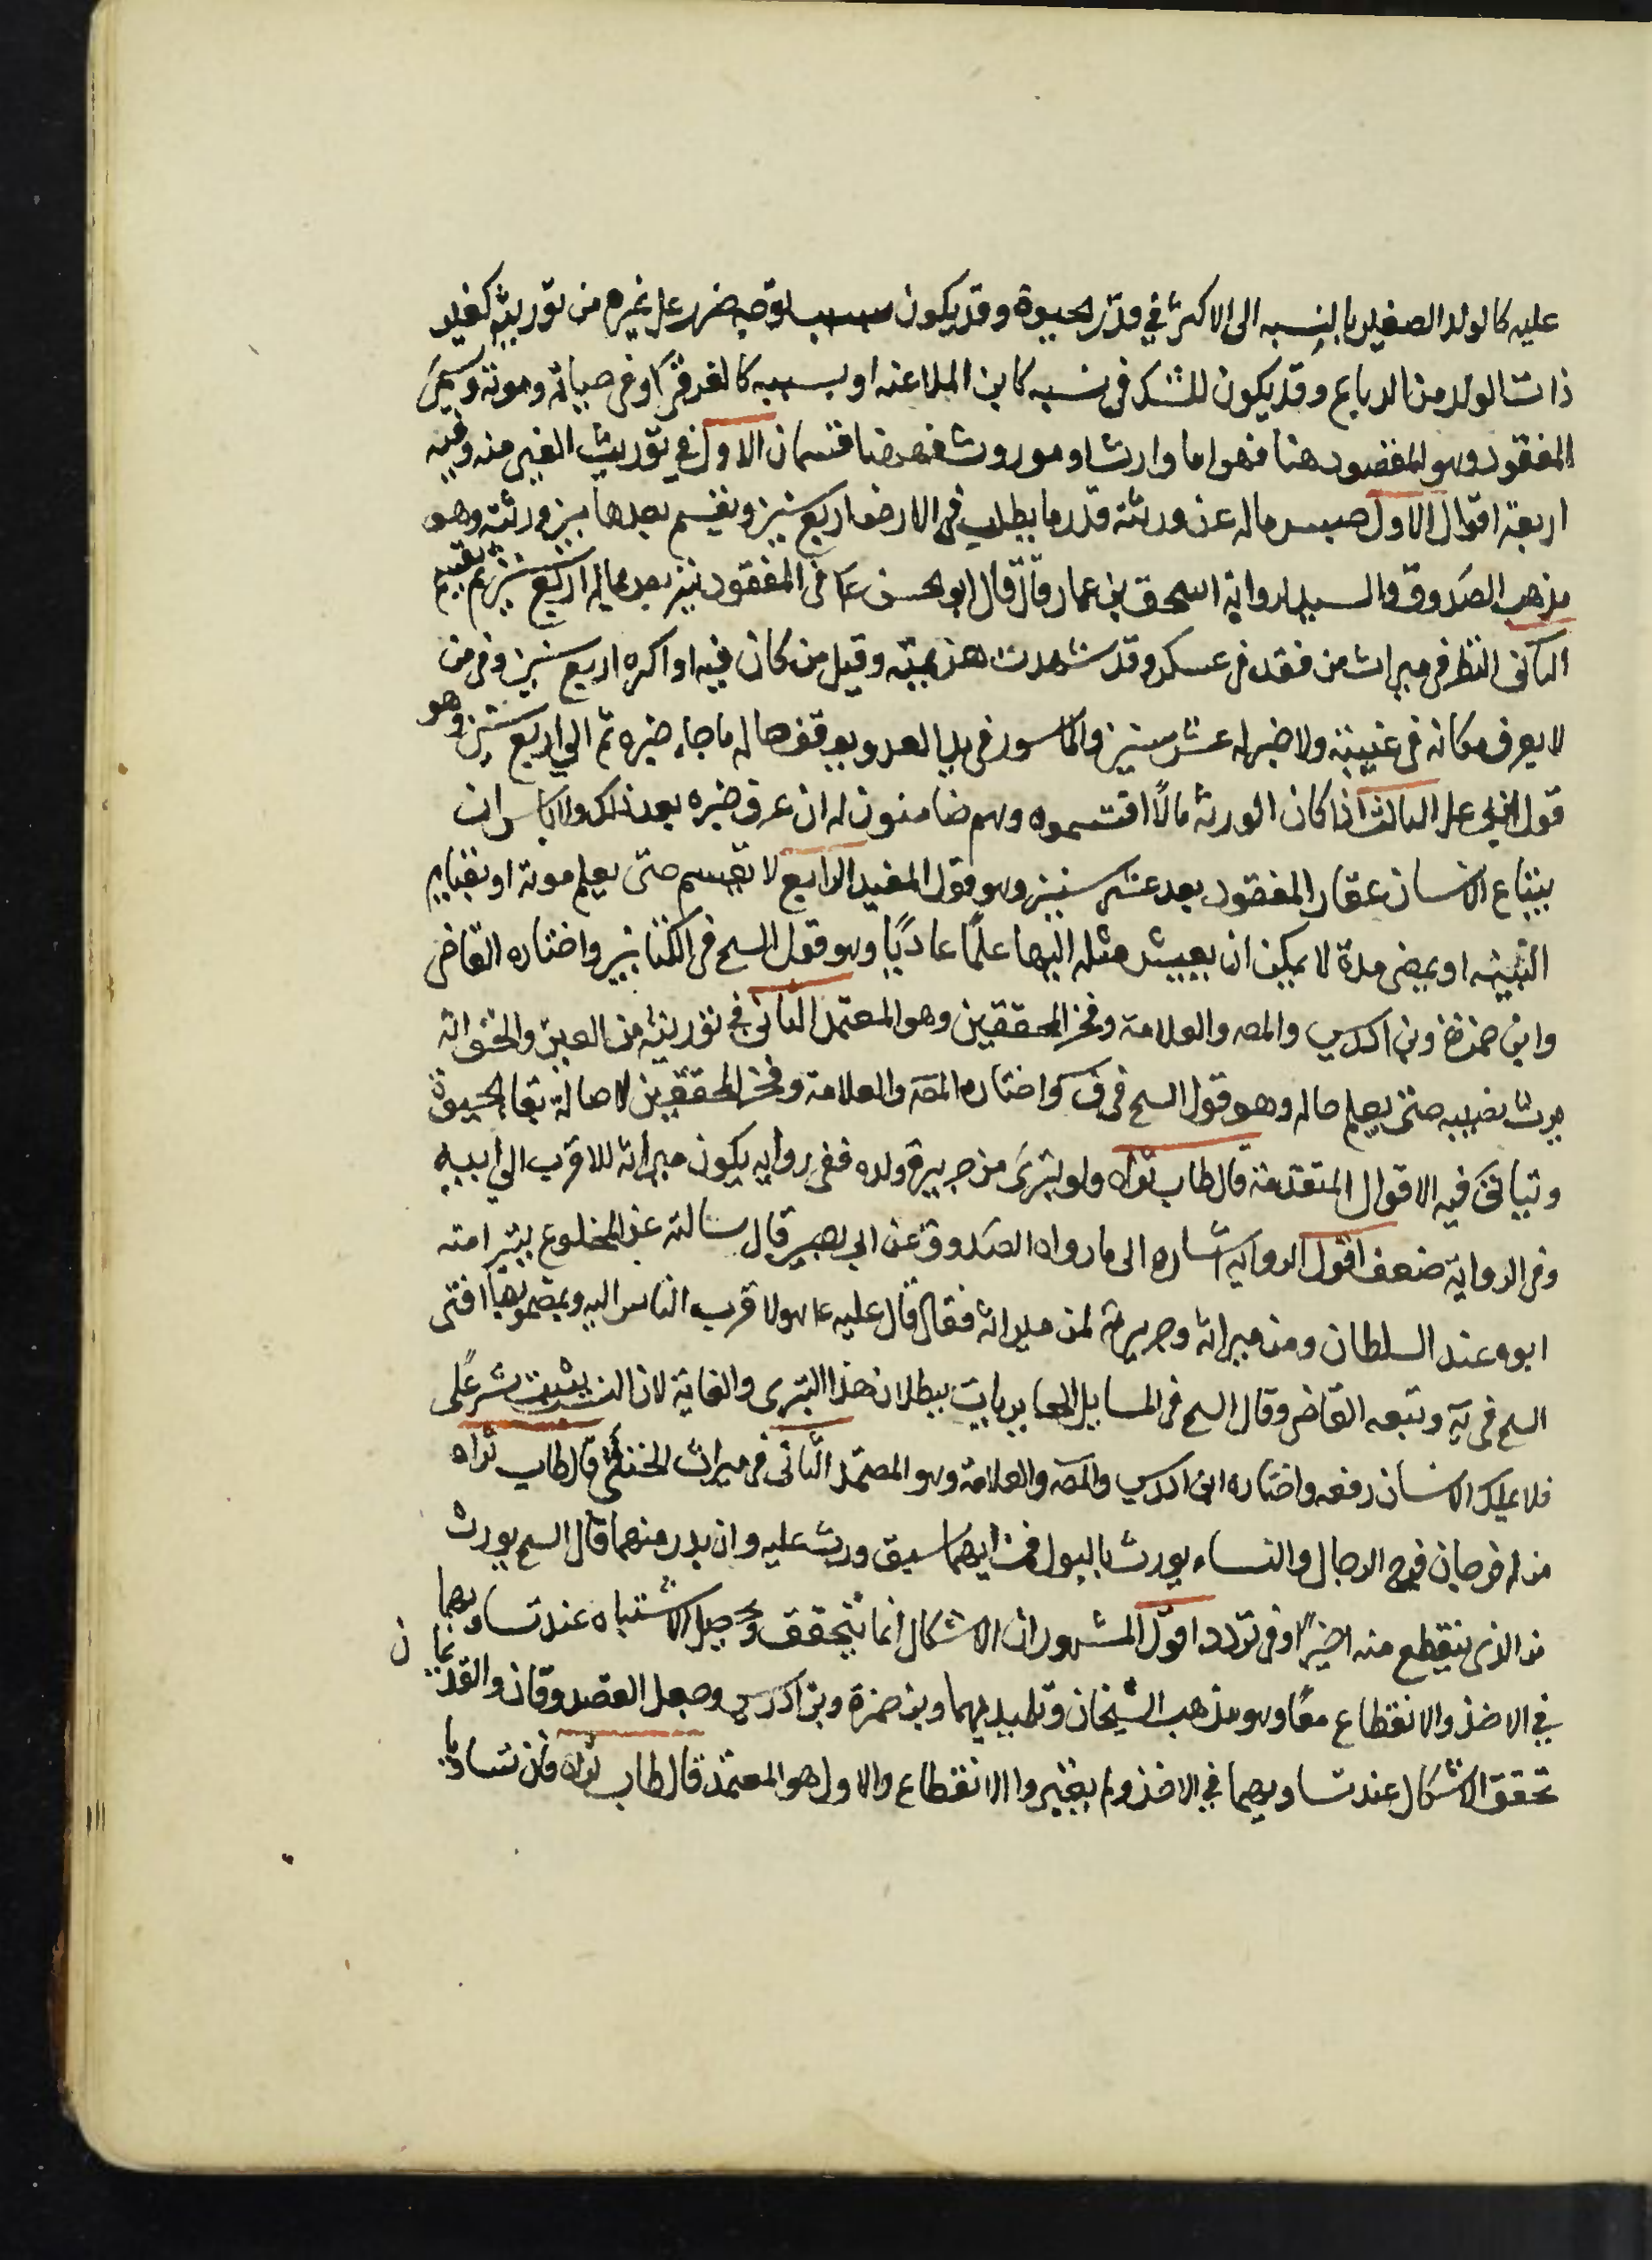 عليه كالولد الصغير بالنسبه الى الاكبر في قدر الحبوة وقد يكون بسبب لوقه ضرر على غيره من توريثه كغير
ذات الولد من الرباع وقد يكون للشك في نسبه كابن الملاعنه او بسببه كالغرقى او في حياته وموته ويسمى
المفقود وهو المقصود هنا فهو اما وارث او موروث فههنا قسمان الاول في توريث الغير منه وفيه
اربعة اقوال الاول حبس ماله عن ورثته قدر ما يطلب في الارض اربع سنين ويقسم بعدها بين ورثته وهو
مذهب الصدوق والسيد لرواية اسحق بن عمار قال قال ابو الحسن ع في المفقود يتربص بماله اربع سنين ثم يقسم
الثاني النظر في ميراث من فقد في عسكر وقد شهدت هزيمته وقيل من كان فيه او اكثره اربع سنين وفي من
لا يعرف مكانه في غيبته ولا خبر له عشر سنين والماسور في يد العدو يوقف ماله ما جاء خبره ثم الى اربع سنين وهو
قول ابي علي الثالث اذا كان الورثه مالا اقتسموه وهم ضامنون له ان عرف خبره بعد ذلك ولا باس ان
يبتاع الانسان عقار المفقود بعد عشر سنين وهو قول المفيد الرابع لا تقسم حتى يعلم موته او بقيام
البينه او يمضى مدة لا يمكن ان يعيش مثله اليها علما عاديا وهو قول الشيخ في الكتابين واختاره القاضى
وابن حمزة وبن ادريس والمصه والعلامة وفخر المحققين وهو المعتمد الثانى في توريثه من الغير والحق انه
يرث نصيبه حتى يعلم حاله وهو قول الشيخ في ف واختاره المصه والعلامة وفخر المحققين لاصالة بقاء الحيوة
وتياتى فيه الاقوال المتقدمة قال طاب ثراه ولو تبرى من جريرة ولده ففى روايه يكون ميراثه للاقرب الى ابيه
وفى الرواية ضعف اقول الروايه اشاره الى ما رواه الصدوق عن ابي بصير قال سالته عن المخلوع يتبرا منه
ابوه عند السلطان ومن ميراثه وجريرته لمن ميراثه فقال قال علي ع هو لاقرب الناس اليه وبمضمونها افتى
الشيخ فى يه وتبعه القاضى وقال الشيخ في المسايل الحايريات ببطلان هذا التبرى والغاية لان النسب يثبت شرعا
فلا يملك الانسان رفعه واختاره ابن ادريس والمصه والعلامة وهو المعتمد الثانى في ميراث الخنثى قال طاب ثراه
من له فرجان فرج الرجال والنساء يورث بالبول فمن ايهما سبق ورث عليه وان بدر منهما قال الشيخ يورث
من الذى ينقطع منه اخيرا وفى تردد اقول المشهور ان الاشكال انما يتحقق ويحصل الاشتباه عند تساويهما
في الاخذ والانقطاع معا وهو مذهب الشيخان وتلميديهما وبن حمزة وبن ادريس وجعل الصدوقان والقديمان
تحقق الاشكال عند تساويهما في الاخذ ولم يعتبروا الانقطاع والاول هو المعتمد قال طاب ثراه فان تساويا